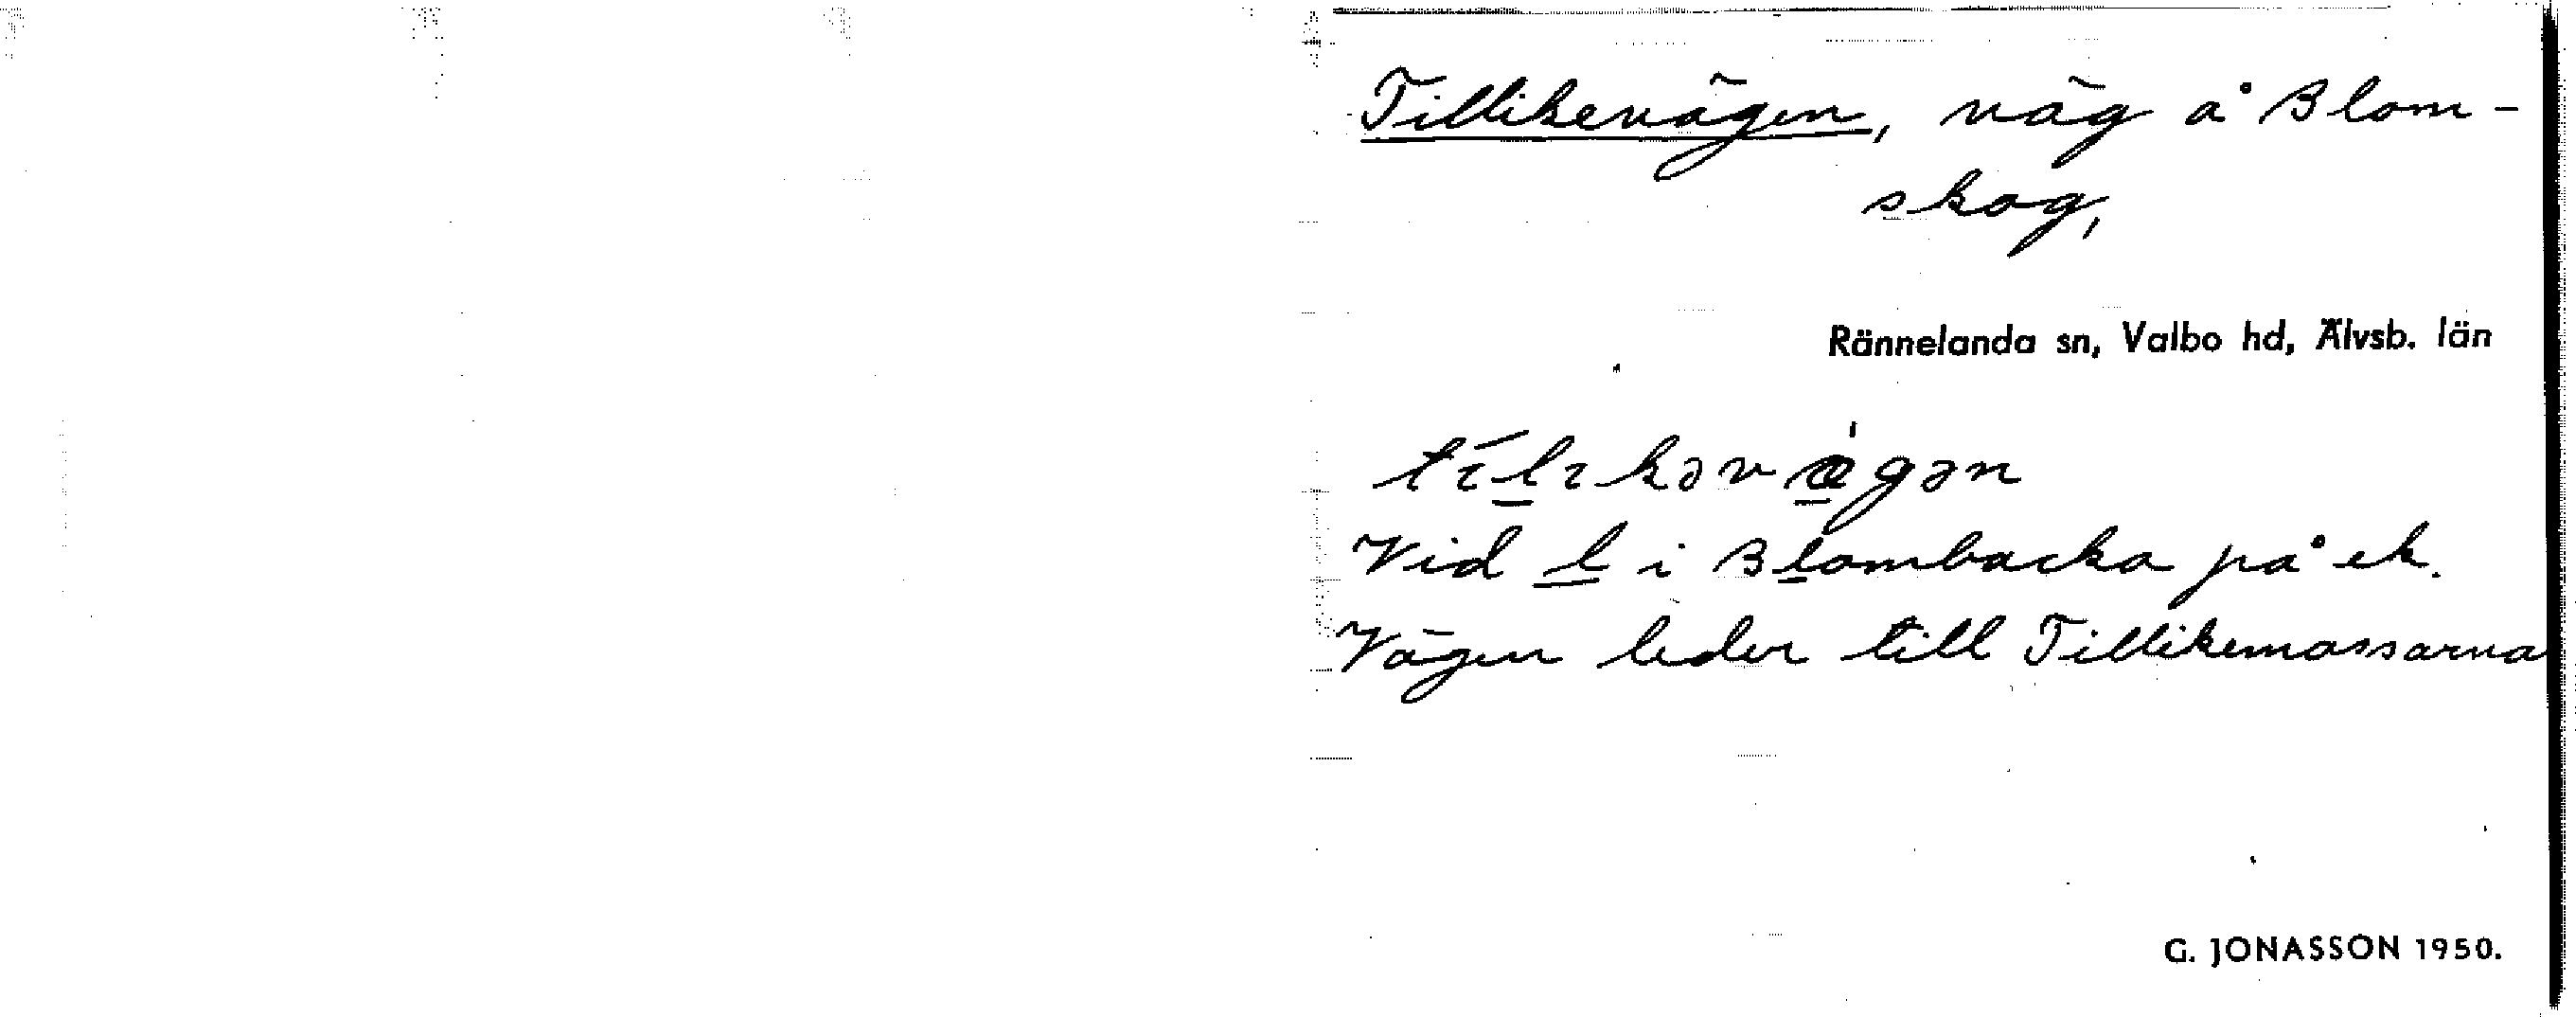 Tillikevägen, väg å Blom-
skog,
Rännelanda sn, Valbo hd, Älvsb. län
tílıkəvæ̀gən
Vid l i Blombacka på ek.
Vägen leder till Tillikemossarna
G. JONASSON 1950.